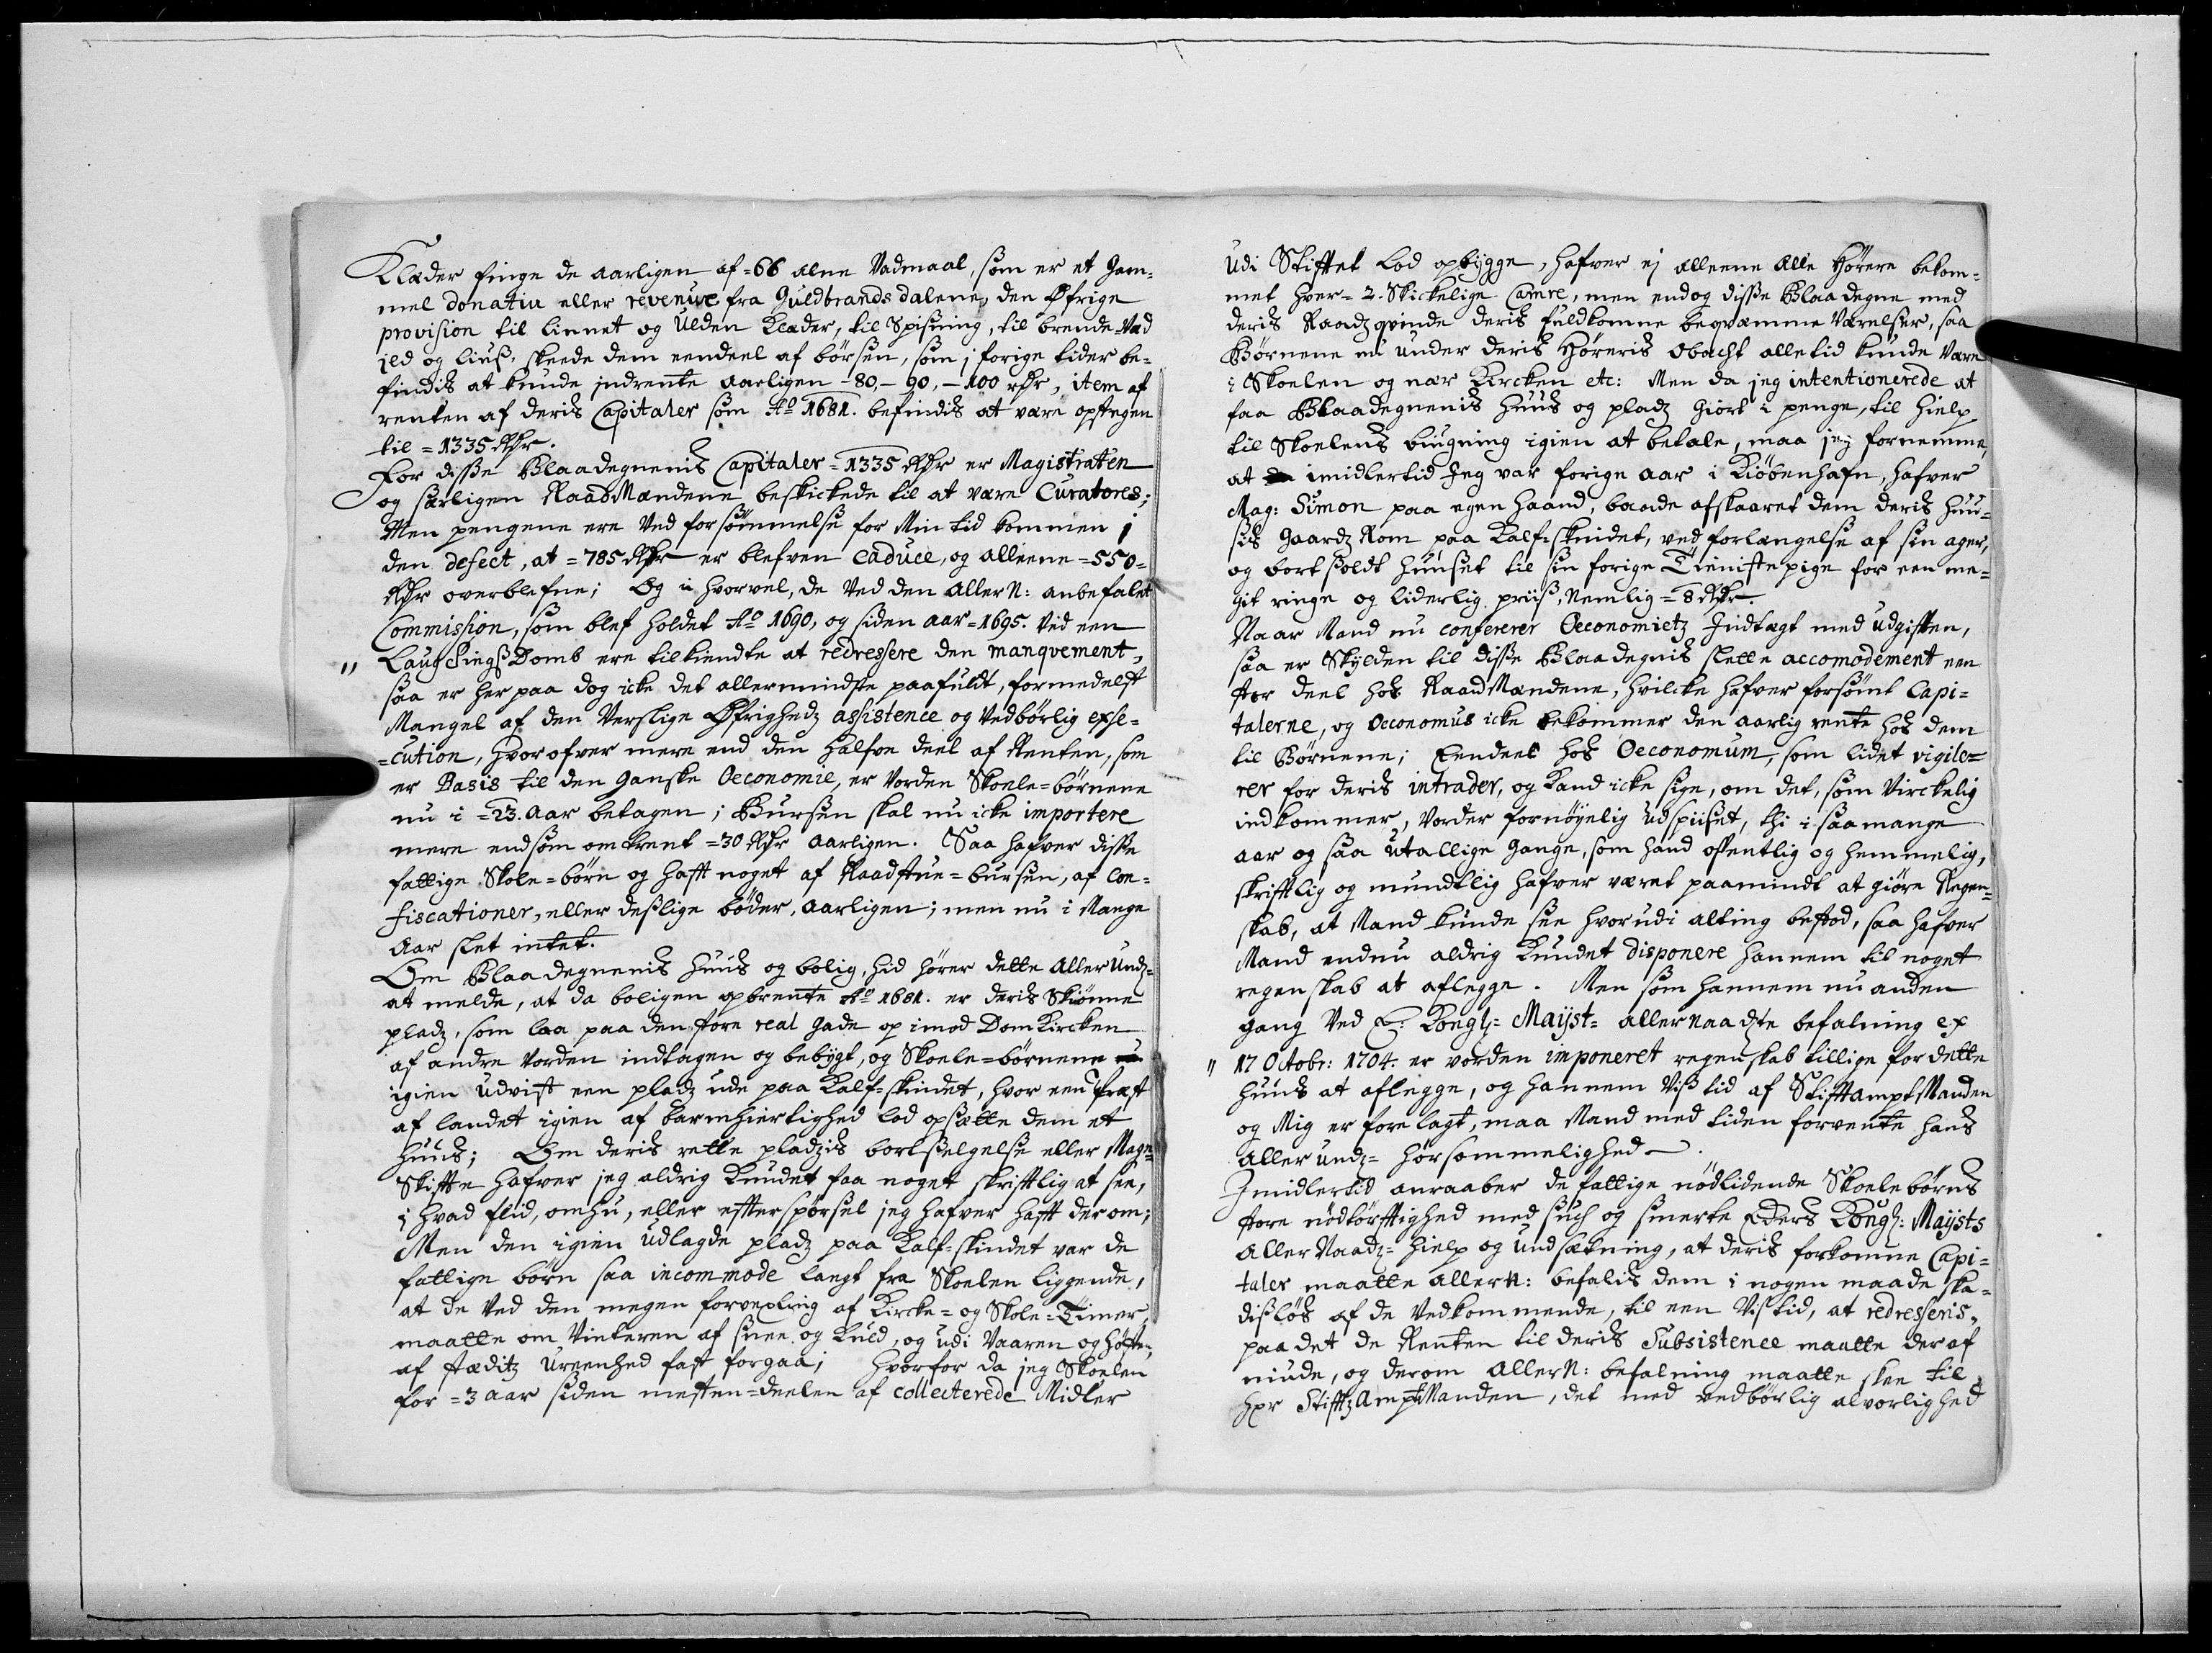 Klæder finge de aarligen af =66 alne Vadmaal, som er et gam-
mel donativ eller revenüe fra Guldbrands dalene, den Øfrige
provision til linnet og Ulden Klæder, til Spisning, til brende=Ved
ild og liuß, skeede dem eendeel af börsen, som i forige tider be-
findis at kunde indrente aarligen -80,- 90,- 100 rdr, item af
renten af deris Capitaler som Ao 1681. befindis at være opstegen
til =1335 Rdr.
For disse Blaadegnenis Capitaler =1335 Rdr er Magistraten
og særligen RaadMændene beskickede til at være Curatores;
Men pengene ere Ved forsömmelse for Min tid kommen i
den defect, at =785 Rdr er blefven caduce, og alleene =550=
Rdr overblefne; Og i hvorvel, de Ved den Allern: anbefalet
Commission, som blef holdet Ao 1690, og siden aar =1695. Ved een
" LaugtingsDomb ere tilkiendte at redressere den manqvement,
saa er her paa dog icke det allermindste paafuldt, formedelst
Mangel af den Verslige Øfrighedz assistence og Vedbörlig exse-
=cution, hvorofver mere end den halfve deel af Renten, som
er Basis til den ganske Oeconomie, er Vorden Skoele=börnene
nu i =23. Aar betagen; Bursen skal nu icke importere
mere endsom omtrent =30 Rdr aarligen. Saa hafver disse
fattige Skole=börn og hafft noget af Raadstue=bursen, af con-
fiscationer, eller deßlige böder, aarligen; men nu i Mange
Aar slet intet.
Om Blaadegnenis huus og bolig, hid hörer dette AllerUndz=
at melde, at da boligen opbrente Ao 1681. er deris Skiönne
pladz, som laa paa den store real gade op imod DomKircken
af andre Vorden indtagen og bebygt, og Skoele=börnene
igien Udvist een pladz ude paa Kalf=skindet, hvor een Præst
af landet igien af barmhiertighed lod opsætte dem et
huus; Om deris rette pladzis bortselgelse eller Mage=
Skiffte hafver jeg aldrig kundet faa noget skrifftlig at see,
i hvad flid, omhu, eller efftersporsel jeg hafver hafft derom;
Men den igien Udlagde pladz paa Kalf=skindet var de
fattige börn saa incommode langt fra Skoelen liggende,
at de Ved den megen forvexling af Kircke= og Skole=Timer,
maatte om Vinteren af snee og Kuld, og udi Vaaren og höste,
af stæditz Ureenhed fast forgaa; hvorfor da jeg Skoelen
for =3 aar siden mesten=deelen af collecterede Midler
Udi Stifftet Lod opbygge, hafver ej alleene Alle Hörere bekom-
met hver =2. Skickelige Camre, men endog disse Blaadegne med
deris Raadzqvinde deris fuldkomne beqvæmme Værelser, saa
Börnene nu under deris Höreris obacht alletid kunde Være
i Skoelen og nær Kircken etc: Men da jeg intentionerede at
faa Blaadegnenis huus og pladz giort i penge, til hielp
til Skoelens bugning igien at betale, maa jeg fornemme,
at imidlertid Jeg var forige aar i Kiöbenhafn, hafver
Mag: Simon paa egen haand, baade afskaaret dem deris huu-
sis gaardz Rom paa Kalf=skindet, ved forlængelse af sin ager,
og bortsoldt huuset til sin forige Tienistepige for een me-
git ringe og liderlig priiß, Nemlig =8 Rdr.
Naar Mand nu confererer Oeconomietz Indtægt med udgifften,
saa er Skylden til disse Blaadegnis slette accomodement een
stor deel hos RaadMændene, hvilcke hafver forsömt Capi-
talerne, og Oeconomus icke bekommer den aarlig rente hos dem
til Börnene; Eendeel hos Oeconomum, som lidet vigile=
rer for deris intrader, og Kand icke sige, om det, som Virckelig
indkommer, Vorder fornöyelig udspiiset, thi i saa mange
aar og saa Utallige gange, som hand offentlig og hemmelig,
skrifftlig og mundtlig hafver været paamindt at giöre Regen-
skab, at Mand kunde see hvorudi alting bestod, saa hafver
Mand endnu aldrig kundet disponere hannem til noget
regenskab at aflegge. Men som hannem nu anden
gang Ved E: Kongl= Mayst= allernaadste befalning ex
" 17 Octobr: 1704. er vorden imponeret regenskab tillige for dette
huus at aflegge, og hannem Viß tid af StifftamptManden
og Mig er forelagt, maa Mand med tiden forvente hans
allerundz= hörsommelighed.
Imidlertid anraaber de fattige nödlidende Skoelebörns
store nödtörfftighed med such og smerte Eders Kongl: Maysts
AllerNaadz= hielp og undsætning, at deris forkomne Capi=
taler maatte allern: befalis dem i nogen maade ska-
disløs af de Vedkommende, til een Viß tid, at redresseris,
paa det de Renten til deris Subsistence maatte deraf
niude, og derom allern: befalning maatte skee til
Hr StifftzAmptManden, det med vedbörlig alvorlighed